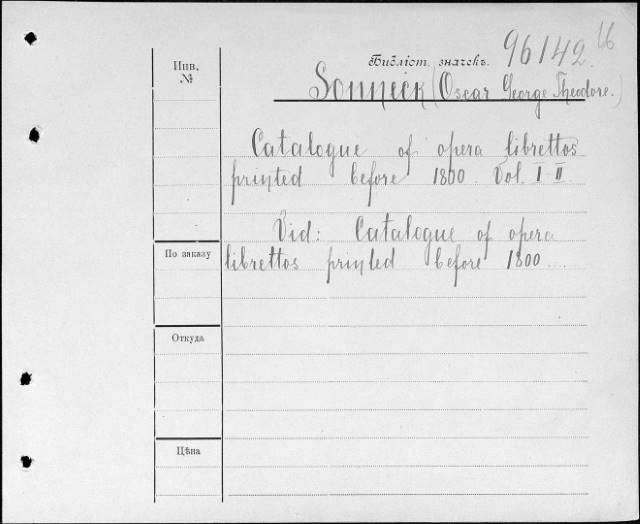 96142
Библіот. значекъ.
Инв.
№
Sonneck (Oscar George Theodore.)
Catalogue of opera librettos
printed before 1800. Vol. I-II
Vid: Catalogue of opera
По заказу
librettos printed before 1800...
Откуда
Цѣна